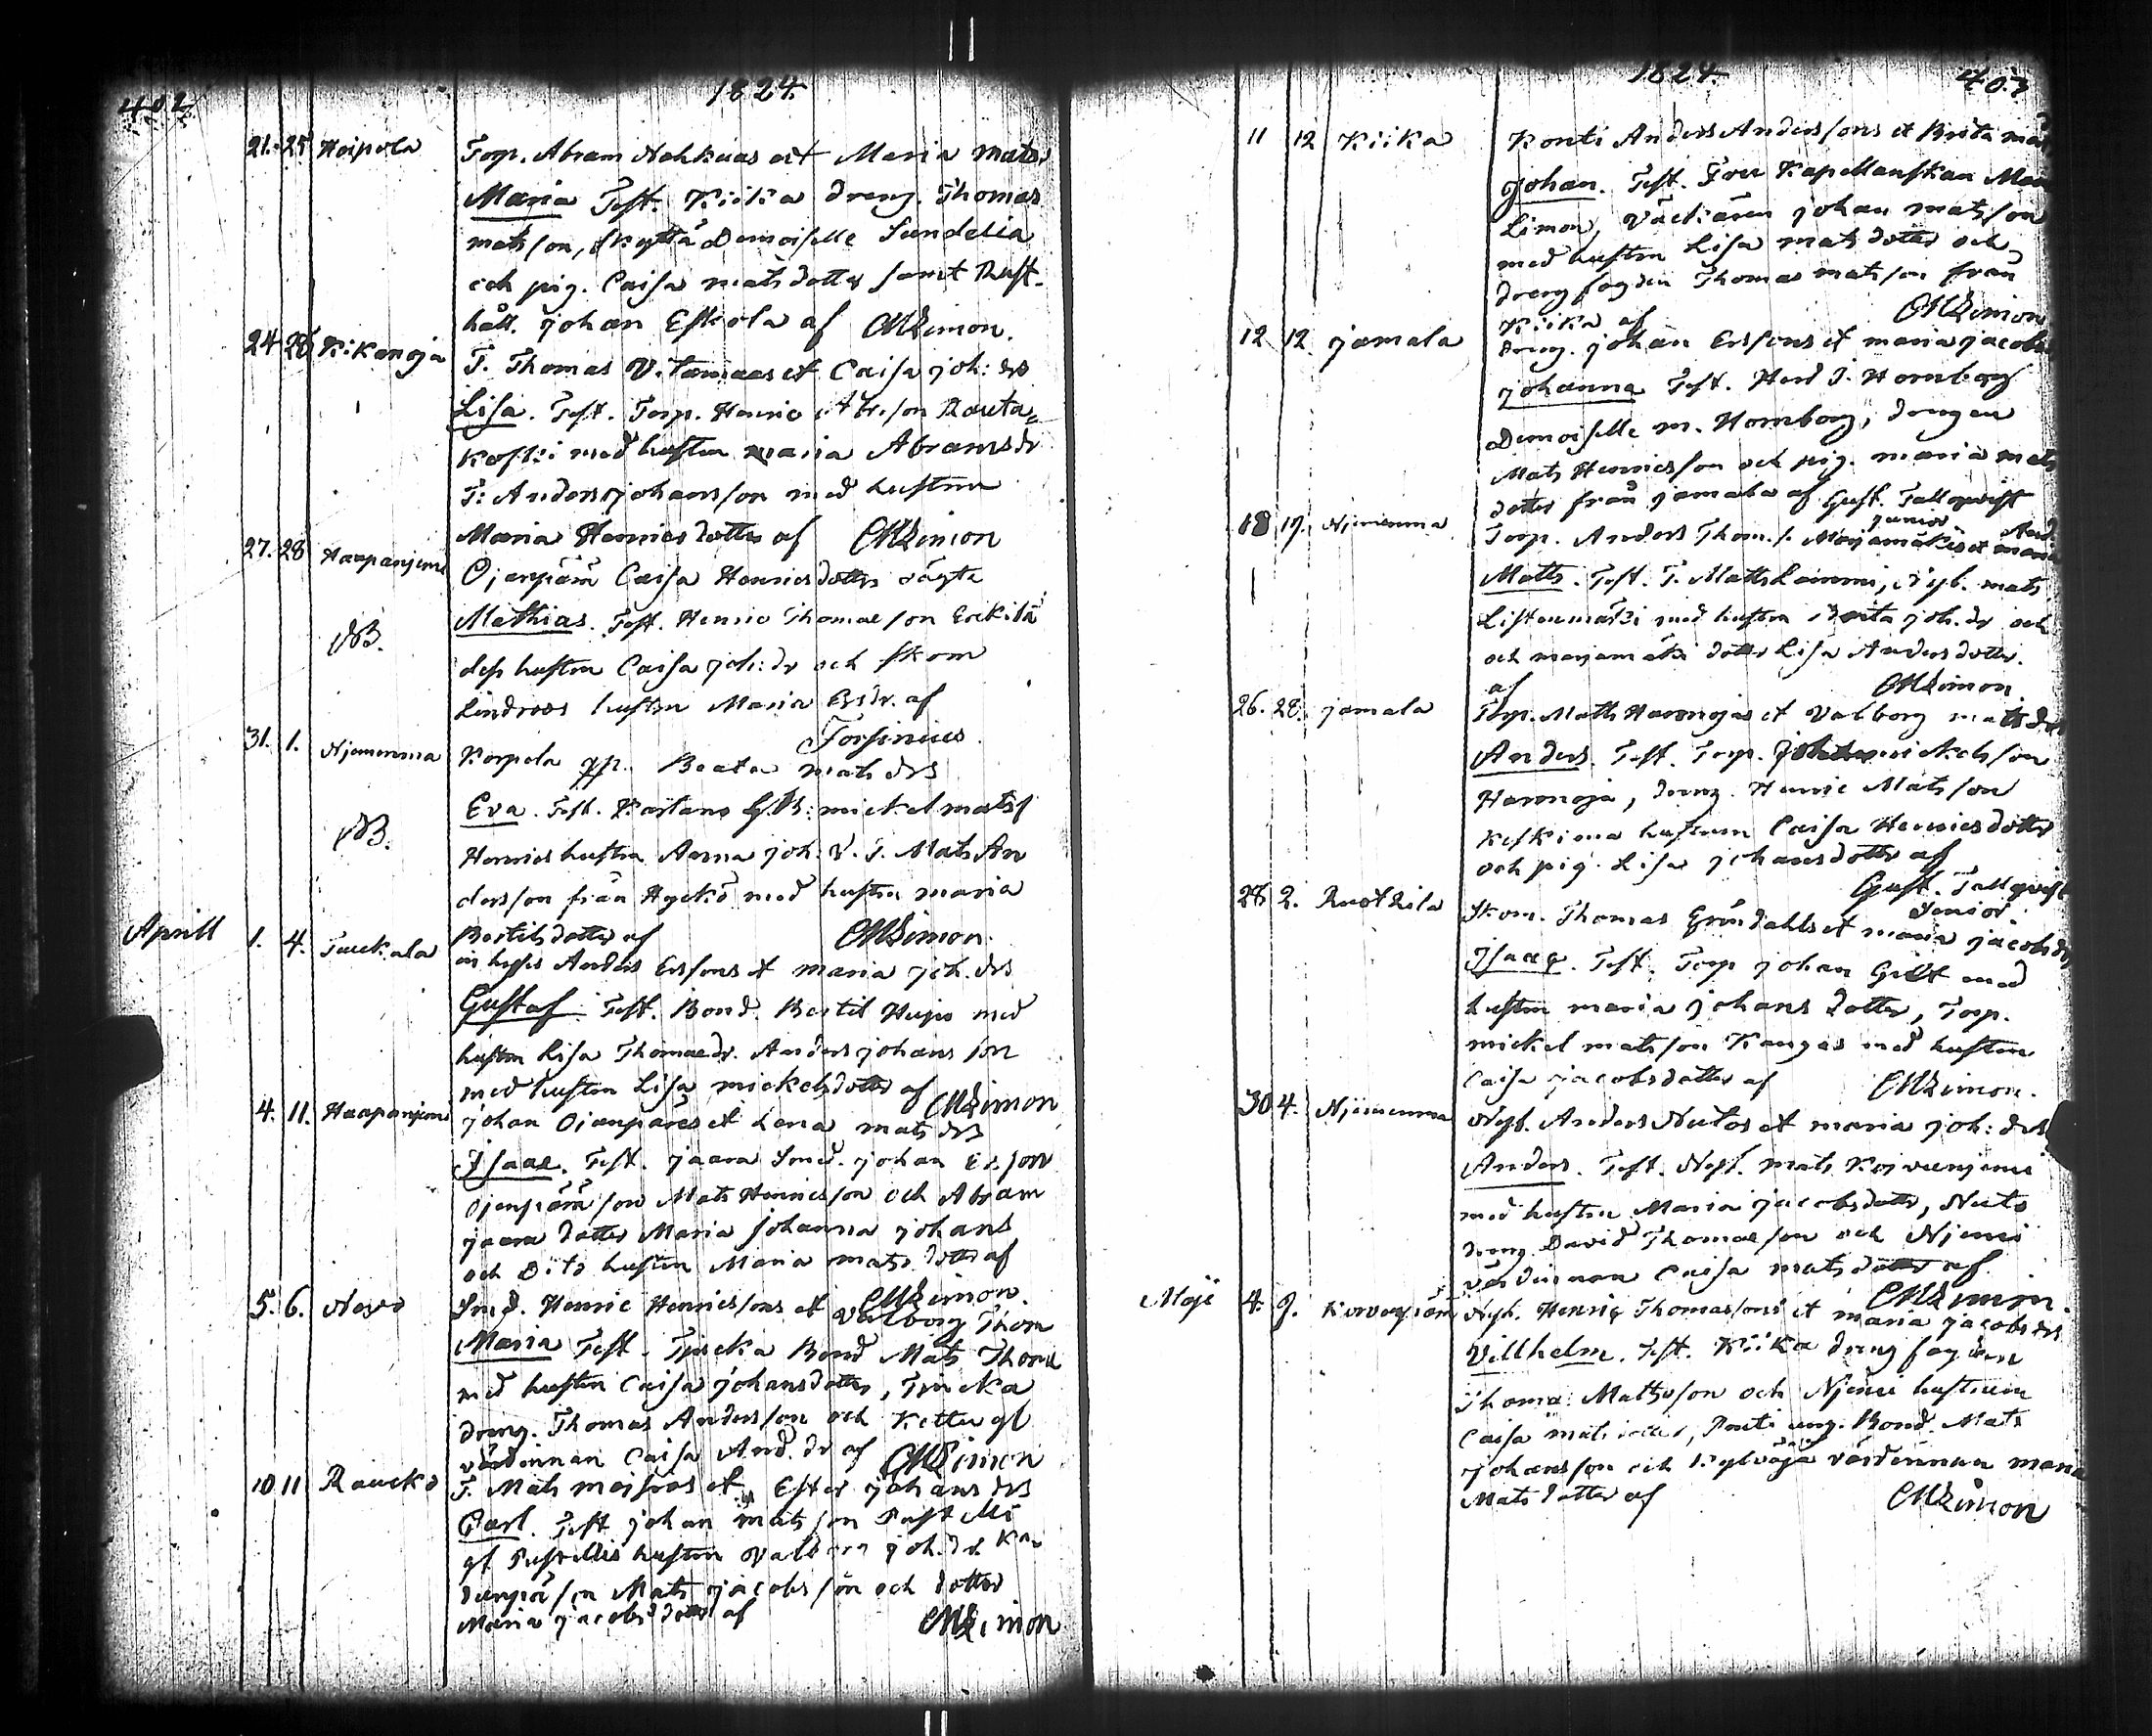 402
1824.
21. 25 Heipola Torp. Abram Nohkuas et Maria Mats
Maria Test. Kiika dreng. Thomas
matsson, skyttä Demoiselle Sundelia
och pig. Caisa matsdotter samt Rust-
håll. Johan Eskola af CMLimon.
24 28 Kikanoja T. Thomas V. tamaas et Caisa joh: drs
Lisa. Test. Torp. Henric Abr:son Rauta=
koski med hustru maria Abramsdr
T: Anders johansson med hustru
Maria Henricsdotter af CMLimon
27. 28 Haapanjemi Ojanpään Caisa Henricsdotters oägta
Mathias. Test. Henric Thomasson Erkilä
OB. dess hustru Caisa joh:dr och skom
Lindroos hustru Maria Ersdr. af
Forsinius.
31. 1. Njemenma Korpela Beata mats drs
Eva. Test. Kartano mickel mats
OB. Henrics hustru Anna joh: T. Mats An
dersson från Hyckö med hustru maria
Bertilsdotter af CMLimon.
Aprill 1. 4. Tuckala inhyses Anders Erssons et maria joh. drs
Gustaf. Test. Bond. Bertil Hujo med
hustru Lisa Thomædr. Anders johansson
med hustru Lisa mickelsdotter af CMLimon
4. 11. Haapanjemi johan Ojanpääs et Lena mats drs
Isaac. Test. jaara Smed. johan Ersson
Ojanpään son Mats Henricsson och Abram
jaara dotter Maria Johanna johans
och Dito hustru Maria matsdotter af
CMLimon.
5. 6. Smed. Henric Henricssons et Valborg Thom
Maria Test. Bond Mats Thom
med hustru Caisa johansdotter,
dreng. Thomas Andersson och
värdinnan Caisa And. dr af CMLimon
10 11 Raucko T. Mats et Ester johans drs
Carl. Test johan matsson
hustru Valborg joh.dr
son Mats jacobsson och dotter
Maria jacobsdotter af CMLimon
1824.
403
11 12 Kiika Konti Anders Anderssons et Brita
Johan. Test. Fru Kapellanskan
Limon, Väckären johan matsson
med hustru Lisa matsdotter och
drengfogden Thomas matsson från
Kiika af CMLimon
12 12 jamala dreng. johan Erssons et maria jacobs
Johanna Test. Herr J. Hornborg
Demoiselle M. Hornborg, drengen
Mats Henricsson och pig. maria mats
dotter från jamala af Gust. Tallqwist
junior
18 19. Njemenma Torp. Anders Thom.s. Marjamäkis et maria And.
Matts. Test. T. Matts Lammi, Nyb. mats
Listenmäki med hustru Brita joh. dr och
och marjamäki dotter Lisa Andersdotter.
af CMLimon
26. 28. jamala Torp. Matts Haronojas et Valborg mats drs
Anders. Test. Torp. Mickelsson
Haronoja, dreng. Henric Matsson
Keskima hustrun Caisa Henricsdotter
och pig. Lisa johansdotter af
Gust. Tallqwist
Senior.
28 2. Ruotzila Skom. Thomas Gröndahls et maria jacobsdrs
Isaac. Test. Torp johan Gilt med
hustru maria johansdotter, Torp.
mickel matsson Kangas med hustru
Caisa jacobsdotter af CMLimon.
30 4. Njemenma Nyb. Anders Nutos et maria joh: drs
Anders. Test. Nyb. mats
med hustru Maria jacobsdotter, Nuto
dreng David Thomasson och Njemi
värdinnan Caisa matsdotter af
CMLimon.
Maji 4. 9. Nyb. Henric Thomassons et maria jacobs drs
Villhelm. Test. Kiika drengfogden
Thomas Matsson och Njemi hustrun
Caisa matsdotter, ung. Bond. Mats
johansson och värdinnan maria
Matsdotter af CMLimon